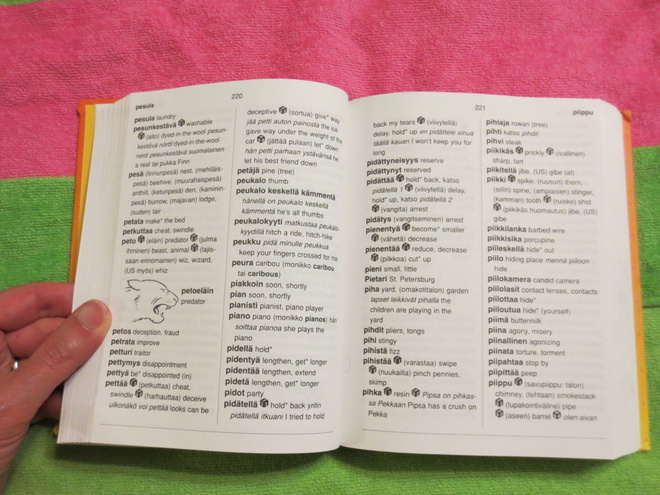 pesula
220
pesula laundry
pesunkestävä washable
(aito) dyed-in-the-wool pesun-
kestävä nörtti dyed-in-the-wool
nerd pesunkestävä suomalainen
a real tai pukka Finn
pesä (linnunpesä) nest, (mehiläis-
pesä) beehive, (muurahaispesä)
anthill, (ketunpesä) den, (kaninin-
pesä) burrow, (majavan) lodge,
(suden) lair
petata make* the bed
petkuttaa cheat, swindle
peto (eläin) predator (julma
ihminen) beast, animal (lajis-
saan erinomainen) wiz, wizard,
(US myös) whiz
petoeläin
predator
petos deception, fraud
petrata improve
petturi traitor
pettymys disappointment
pettyä be* disappointed (in)
pettää (petkuttaa) cheat,
swindle (harhauttaa) deceive
ulkonäkö voi pettää looks can be
deceptive (sortua) give* way
jää petti auton painosta the ice
gave way under the weight of the
car (jättää pulaan) let* down
hän petti parhaan ystävänsä he
let his best friend down
petäjä pine (tree)
peukalo thumb
peukalo keskellä kämmentä
hänellä on peukalo keskellä
kämmentä he's all thumbs
peukalokyyti matkustaa peukalo-
kyydillä hitch a ride, hitch-hike
peukku pidä minulle peukkua
keep your fingers crossed for me
peura caribou (monikko caribou
tai caribous)
piakkoin soon, shortly
pian soon, shortly
pianisti pianist, piano player
piano piano (monikko pianos) hän
soittaa pianoa she plays the
piano
pidellä hold*
pidentyä lengthen, get* longer
pidentää lengthen, extend
pidetä lengthen, get* longer
pidot party
pidätellä hold* back yritin
pidätellä itkuani I tried to hold
221
piippu
back my tears (viivytellä)
delay, hold* up en pidättele sinua
täällä kauan I won't keep you for
long
pidättyneisyys reserve
pidättynyt reserved
pidättää hold* back, katso
pidätellä 1 (viivytellä) delay,
hold* up, katso pidätellä 2
(vangita) arrest
pidätys (vangitseminen) arrest
pienentyä become* smaller
(vähetä) decrease
pienentää reduce, decrease
(pilkkoa) cut* up
pieni small, little
Pietari St. Petersburg
piha yard, (omakotitalon) garden
lapset leikkivät pihalla the
children are playing in the
yard
pihdit pliers, tongs
pihi stingy
pihistä fizz
pihistää (varastaa) swipe
(nuukailla) pinch pennies,
skimp
pihka resin Pipsa on pihkas-
sa Pekkaan Pipsa has a crush on
Pekka
pihlaja rowan (tree)
pihti katso pihdit
pihvi steak
piikikäs prickly (ivallinen)
sharp, tart
piikitellä jibe, (US) gibe (at)
piikki spike, (ruusun) thorn,
(siilin) spine, (ampiaisen) stinger,
(kamman) tooth (ruiske) shot
(piikikäs huomautus) jibe, (US)
gibe
piikkilanka barbed wire
piikkisika porcupine
piileskellä hide* out
piilo hiding place mennä piiloon
hide
piilokamera candid camera
piilolasit contact lenses, contacts
piilottaa hide*
piiloutua hide* (yourself)
piimä buttermilk
piina agony, misery
piinallinen agonizing
piinata torture, torment
piipahtaa stop by
piipittää peep
piippu (savupiippu: talon)
chimney, (tehtaan) smokestack
(tupakointiväline) pipe
(aseen) barrel olen aivan